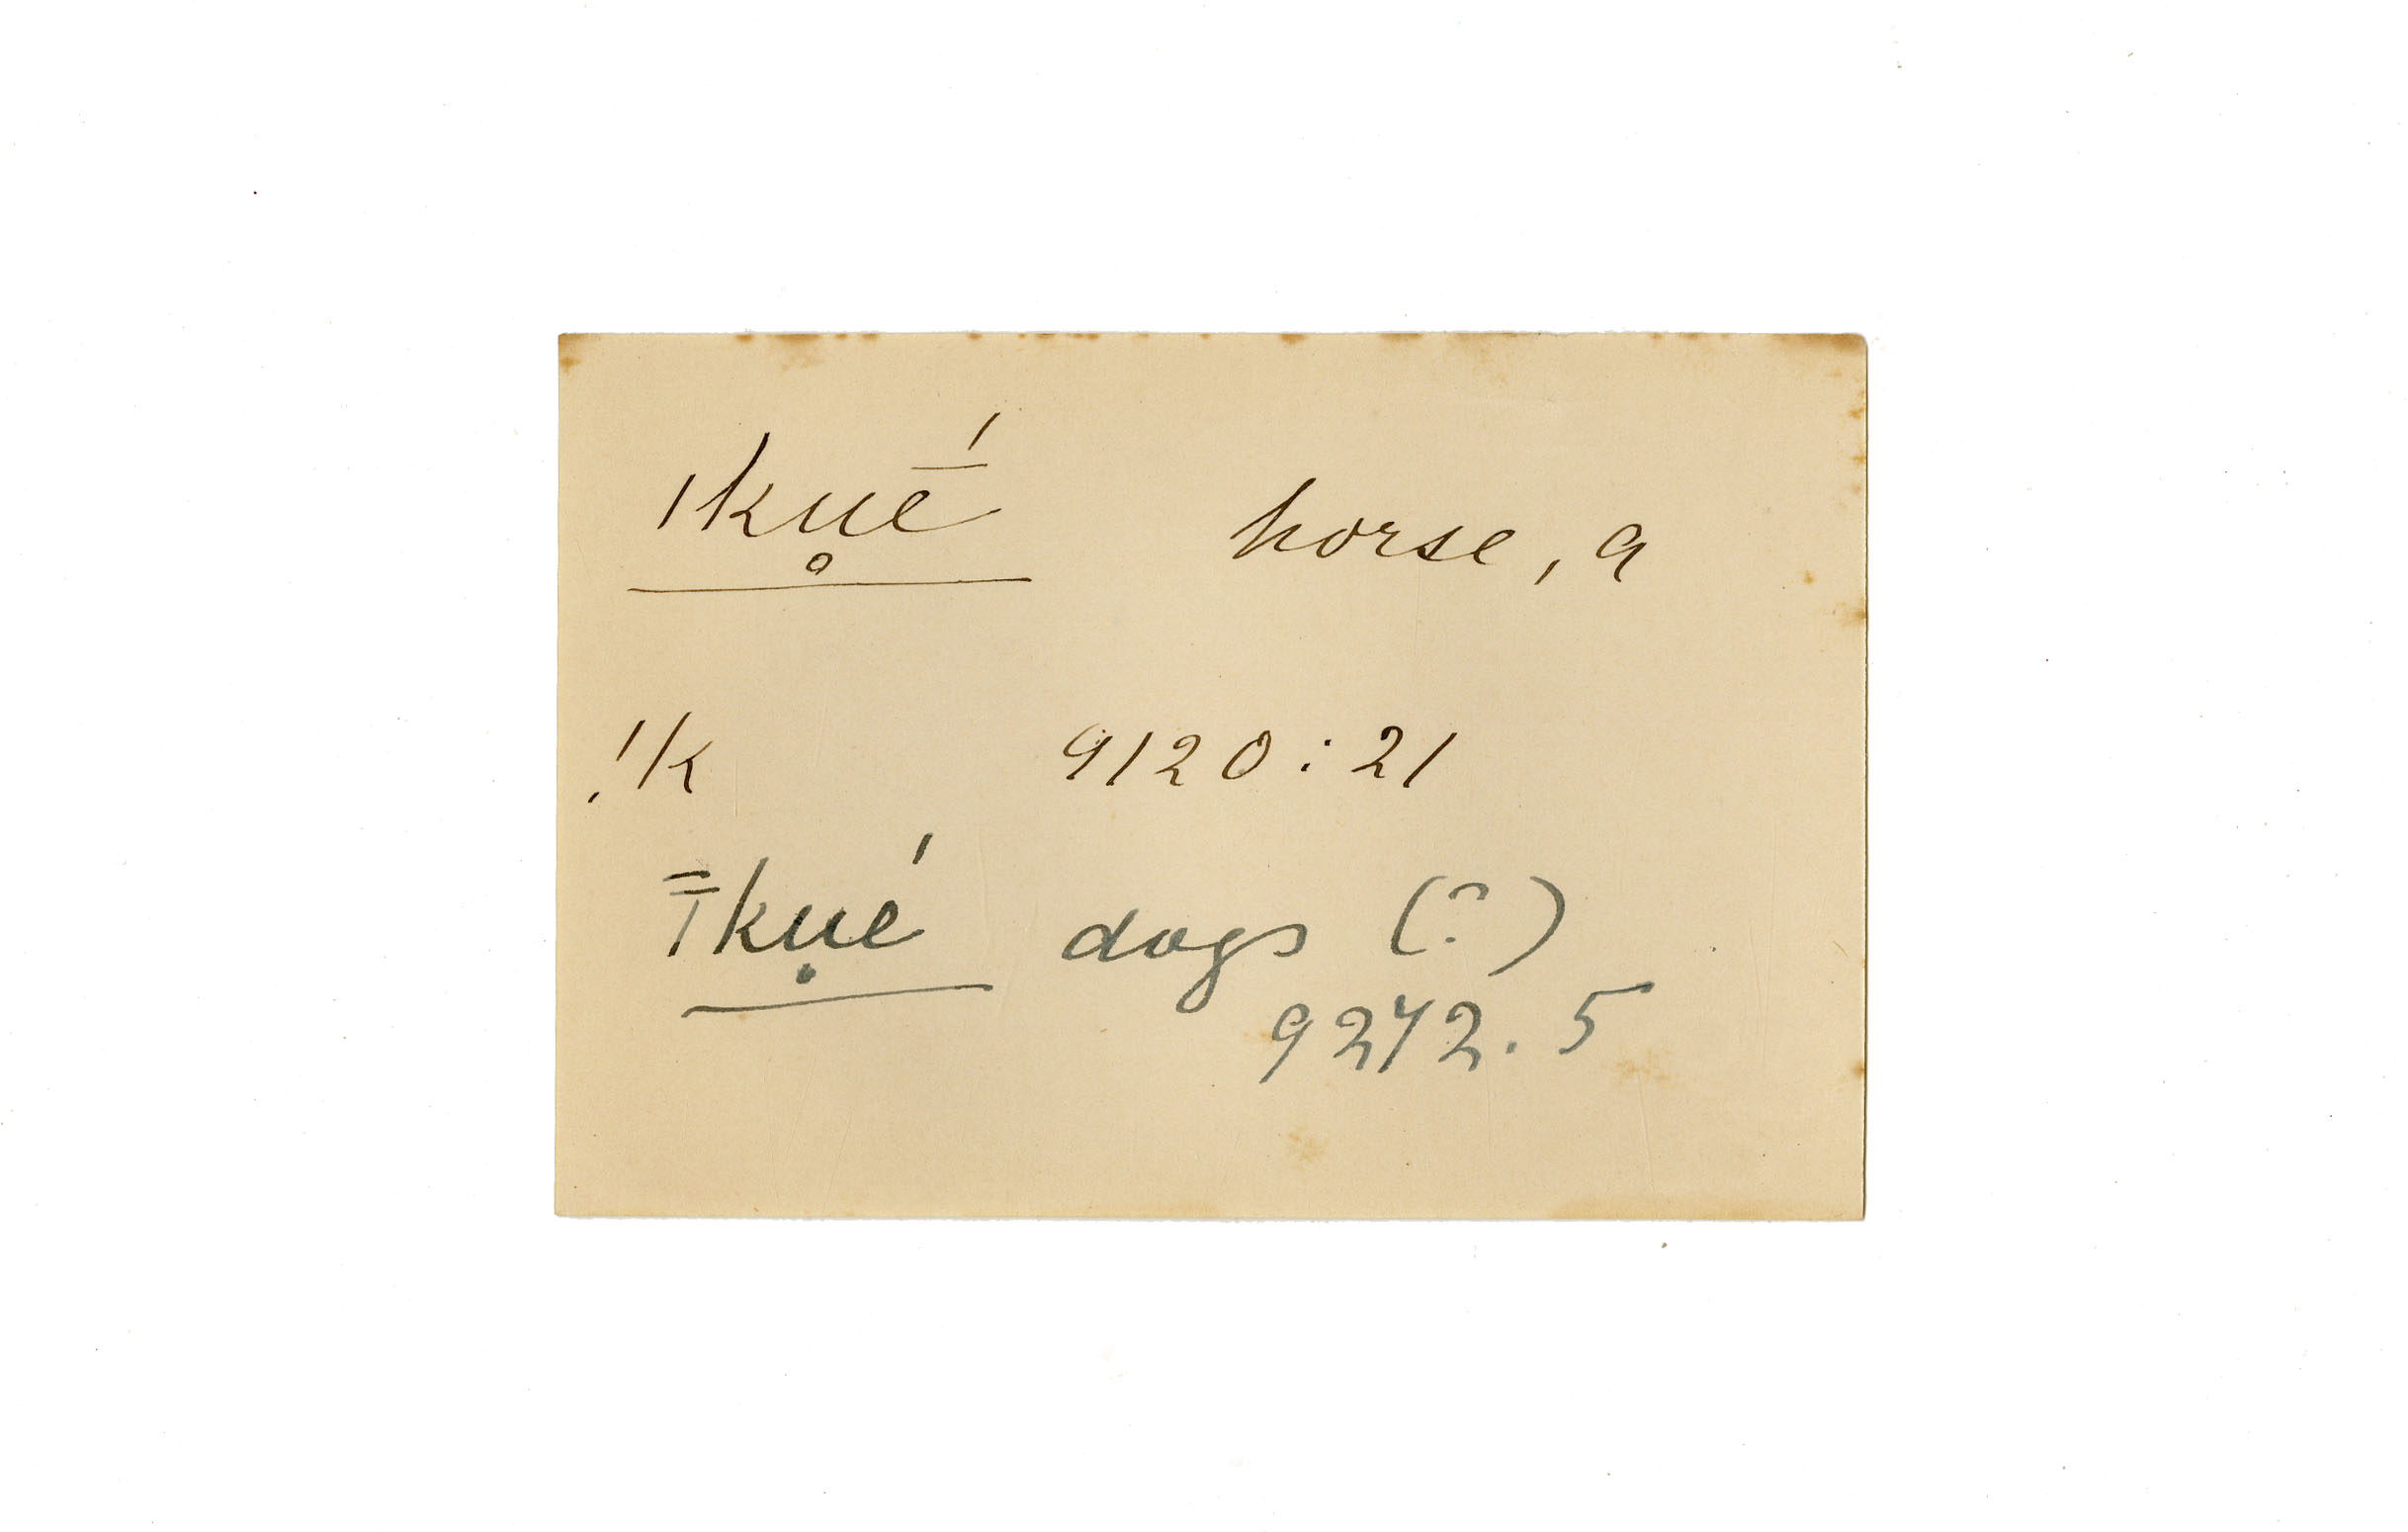 ǀku̥ḗ horse, a
!k 9120:21
ǂkụé dogs (?)
9272.5